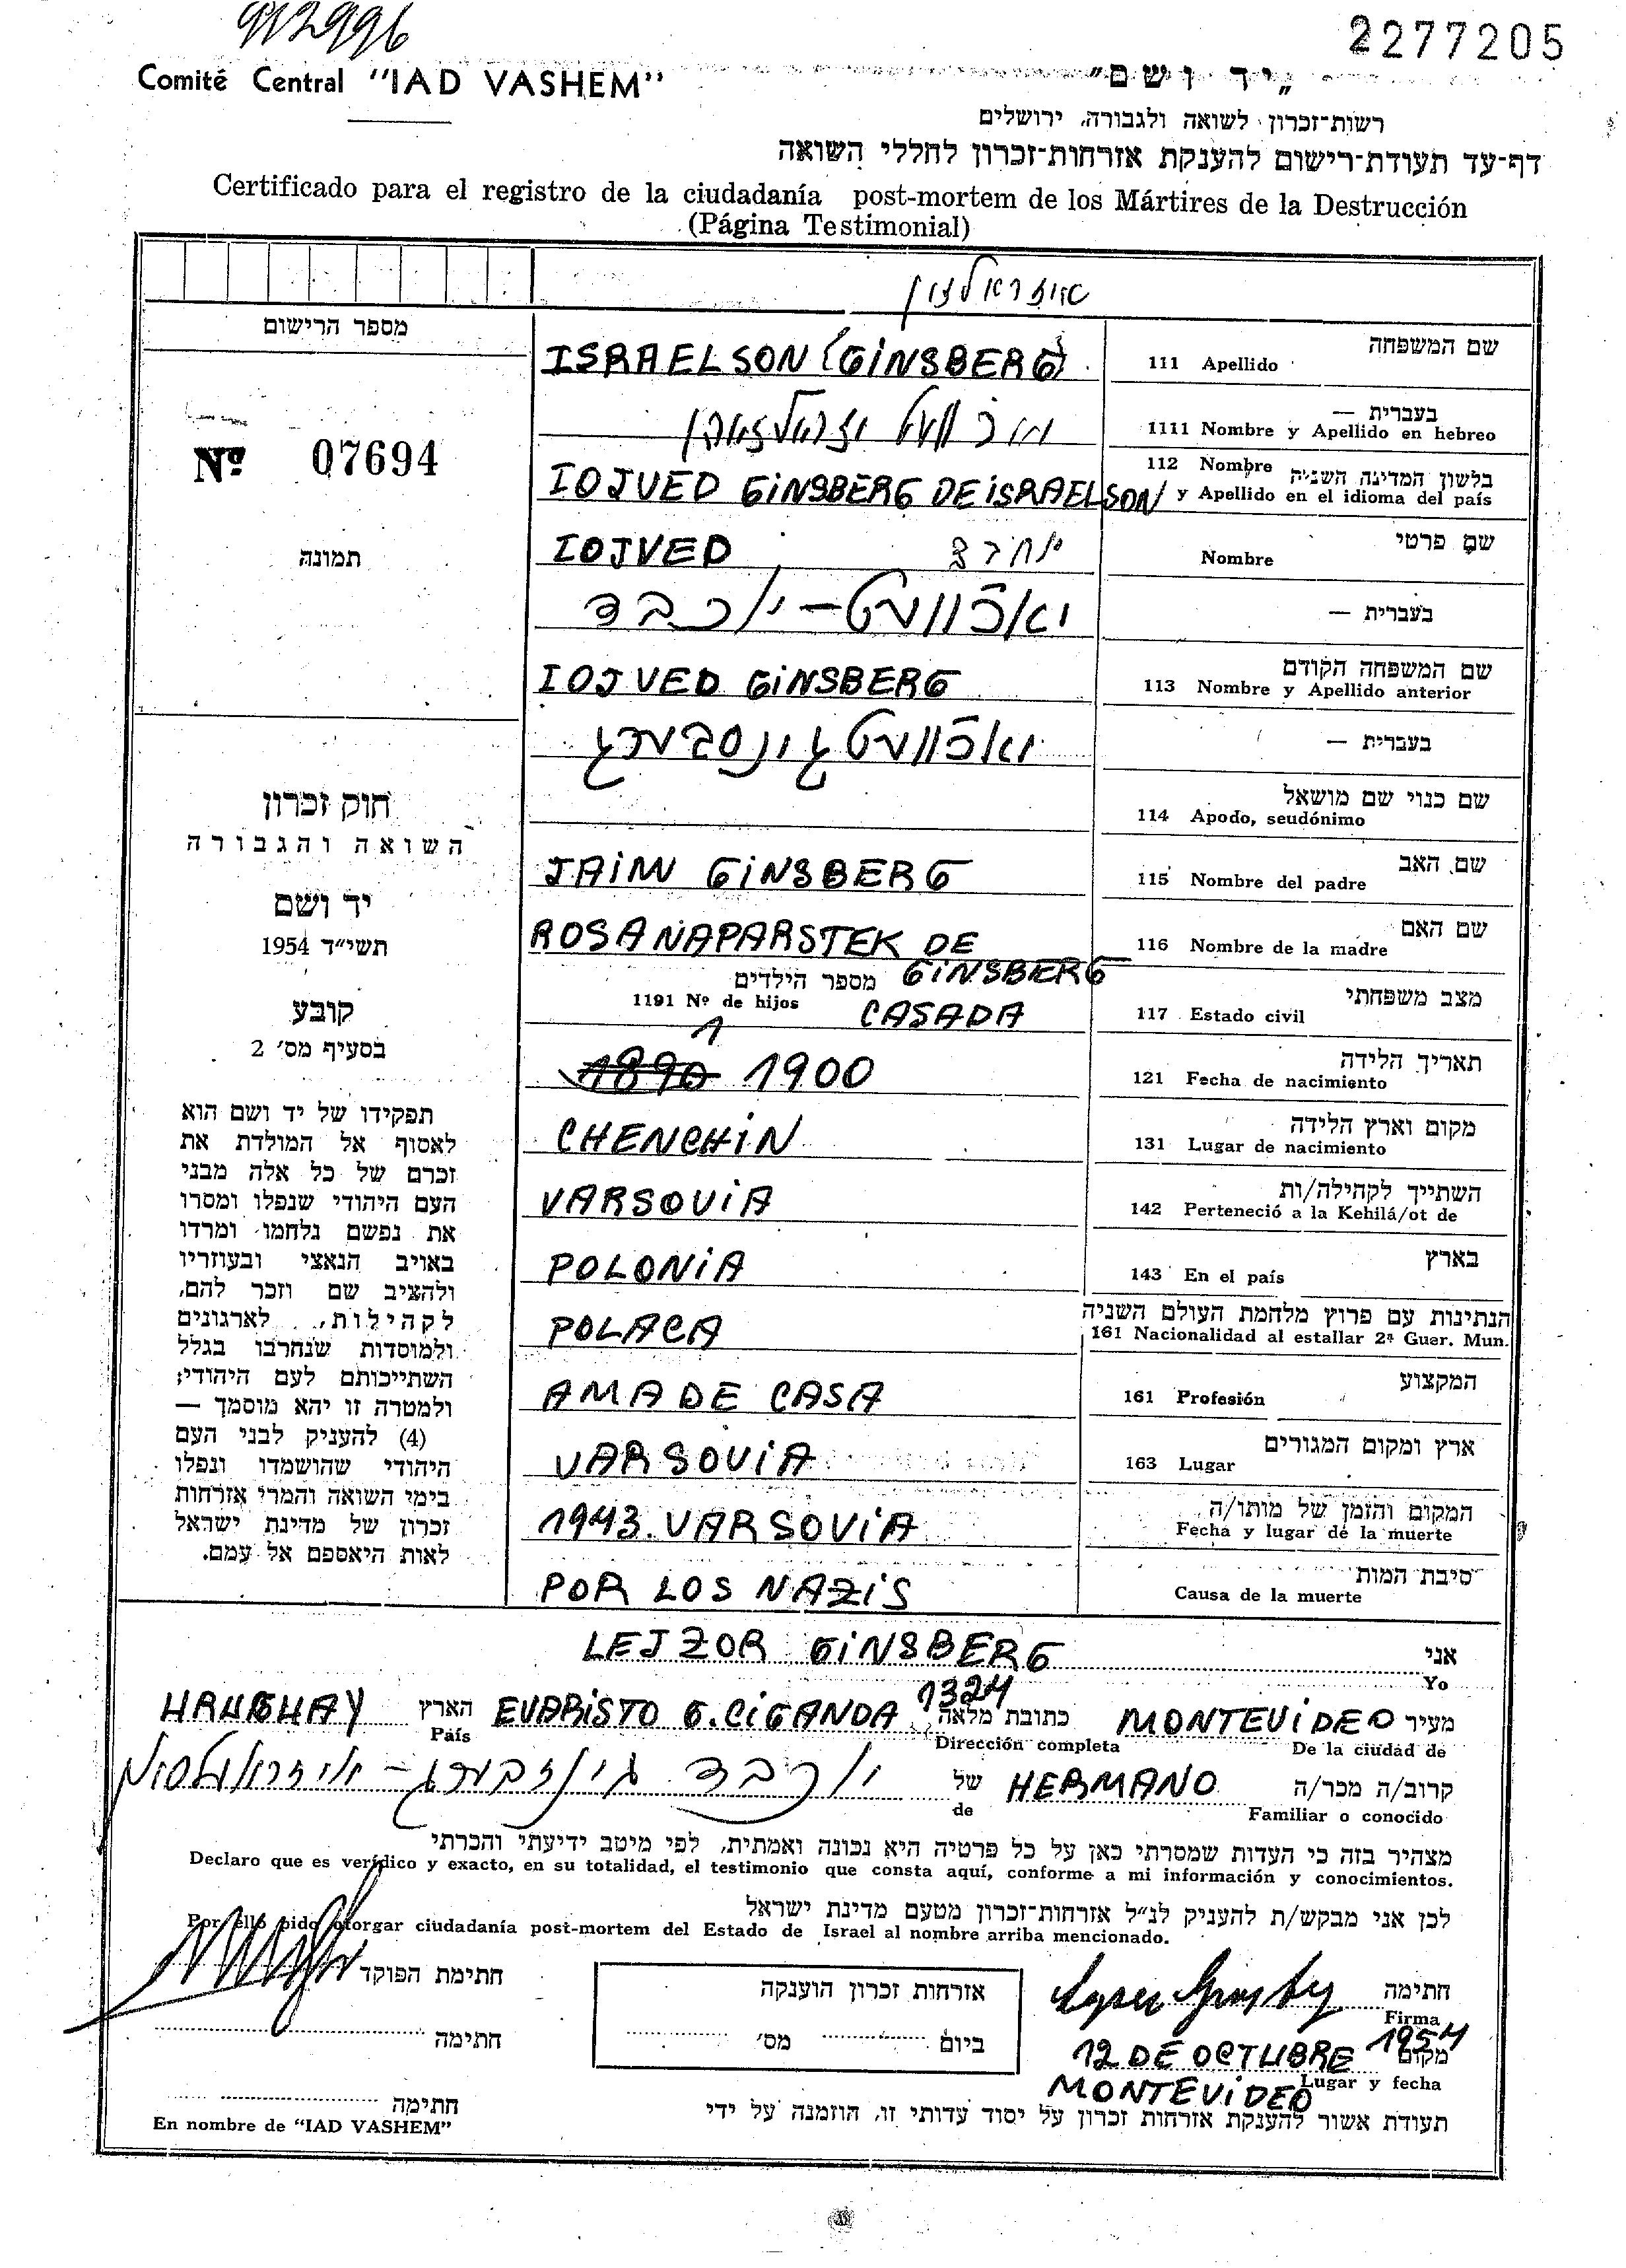 912996
2277205
Comité Central "IAD VASHEM"
„יד ושם"
רשות־זכרון לשואה ולגבורה, ירושלים
דף־עד תעודת־רישום להענקת אזרחות־זכרון לחללי השואה
Certificado para el registro de la ciudadanía post-mortem de los Mártires de la Destrucción
(Página Testimonial)
מספר הרישום
Nº 07694
תמונה
חוק זכרון
השואה והגבורה
יד ושם
תשי״ד 1954
קובע
בסעיף מס׳ 2
תפקידו של יד ושם הוא
לאסוף אל המולדת את
זכרם של כל אלה מבני
העם היהודי שנפלו ומסרו
את נפשם נלחמו ומרדו
באויב הנאצי ובעוזריו
ולהציב שם וזכר להם,
לקהילות, לארגונים
ולמוסדות שנחרבו בגלל
השתייכותם לעם היהודי;
ולמטרה זו יהא מוסמך —
(4) להעניק לבני העם
היהודי שהושמדו ונפלו
בימי השואה והמרי אזרחות
זכרון של מדינת ישראל
לאות היאספם אל עמם.
איזראלזון
שם המשפחה
111 Apellido ISRAELSON (GINSBERG)
בעברית —
1111 Nombre y Apellido en hebreo
112 Nombre בלשון המדינה השניה
y Apellido en el idioma del país IOJVED GINSBERG DE ISRAELSON
שם פרטי
Nombre IOJVED
בעברית — יאכוועט - יוכבד
שם המשפחה הקודם
113 Nombre y Apellido anterior IOJVED GINSBERG
בעברית — יאכוועט גינסבערג
שם כנוי שם מושאל
114 Apodo, seudónimo
שם האב
115 Nombre del padre JAIM GINSBERG
שם האם
116 Nombre de la madre ROSA NAPARSTEK DE GINSBERG
מצב משפחתי
117 Estado civil CASADA
מספר הילדים
1191 Nº de hijos 1
תאריך הלידה
121 Fecha de nacimiento 1890 1900
מקום וארץ הלידה
131 Lugar de nacimiento CHENCHIN
השתייך לקהילה/ות
142 Perteneció a la Kehilá/ot de VARSOVIA
בארץ
143 En el país POLONIA
הנתינות עם פרוץ מלחמת העולם השניה
161 Nacionalidad al estallar 2ª Guer. Mun. POLACA
המקצוע
161 Profesión AMA DE CASA
ארץ ומקום המגורים
163 Lugar VARSOVIA
המקום והזמן של מותו/ה
Fecha y lugar de la muerte 1943. VARSOVIA
סיבת המות
Causa de la muerte POR LOS NAZIS
אני
Yo LEJZOR GINSBERG
מעיר MONTEVIDEO כתובת מלאה EVARISTO G. CIGANDA 1324 הארץ URUGUAY
De la ciudad de Dirección completa País
קרוב/ה מכר/ה HERMANO של יוכבד גינזבורג -
Familiar o conocido de
מצהיר בזה כי העדות שמסרתי כאן על כל פרטיה היא נכונה ואמתית, לפי מיטב ידיעתי והכרתי
Declaro que es verídico y exacto, en su totalidad, el testimonio que consta aquí, conforme a mi información y conocimientos.
לכן אני מבקש/ת להעניק לנ״ל אזרחות־זכרון מטעם מדינת ישראל
Por ello pido otorgar ciudadanía post-mortem del Estado de Israel al nombre arriba mencionado.
חתימה
Firma
מקום 12 DE OCTUBRE 1954
Lugar y fecha MONTEVIDEO
אזרחות זכרון הוענקה
ביום מס׳
חתימת הפוקד
חתימה
חתימה
En nombre de "IAD VASHEM"
תעודת אשור להענקת אזרחות זכרון על יסוד עדותי זו, הוזמנה על ידי